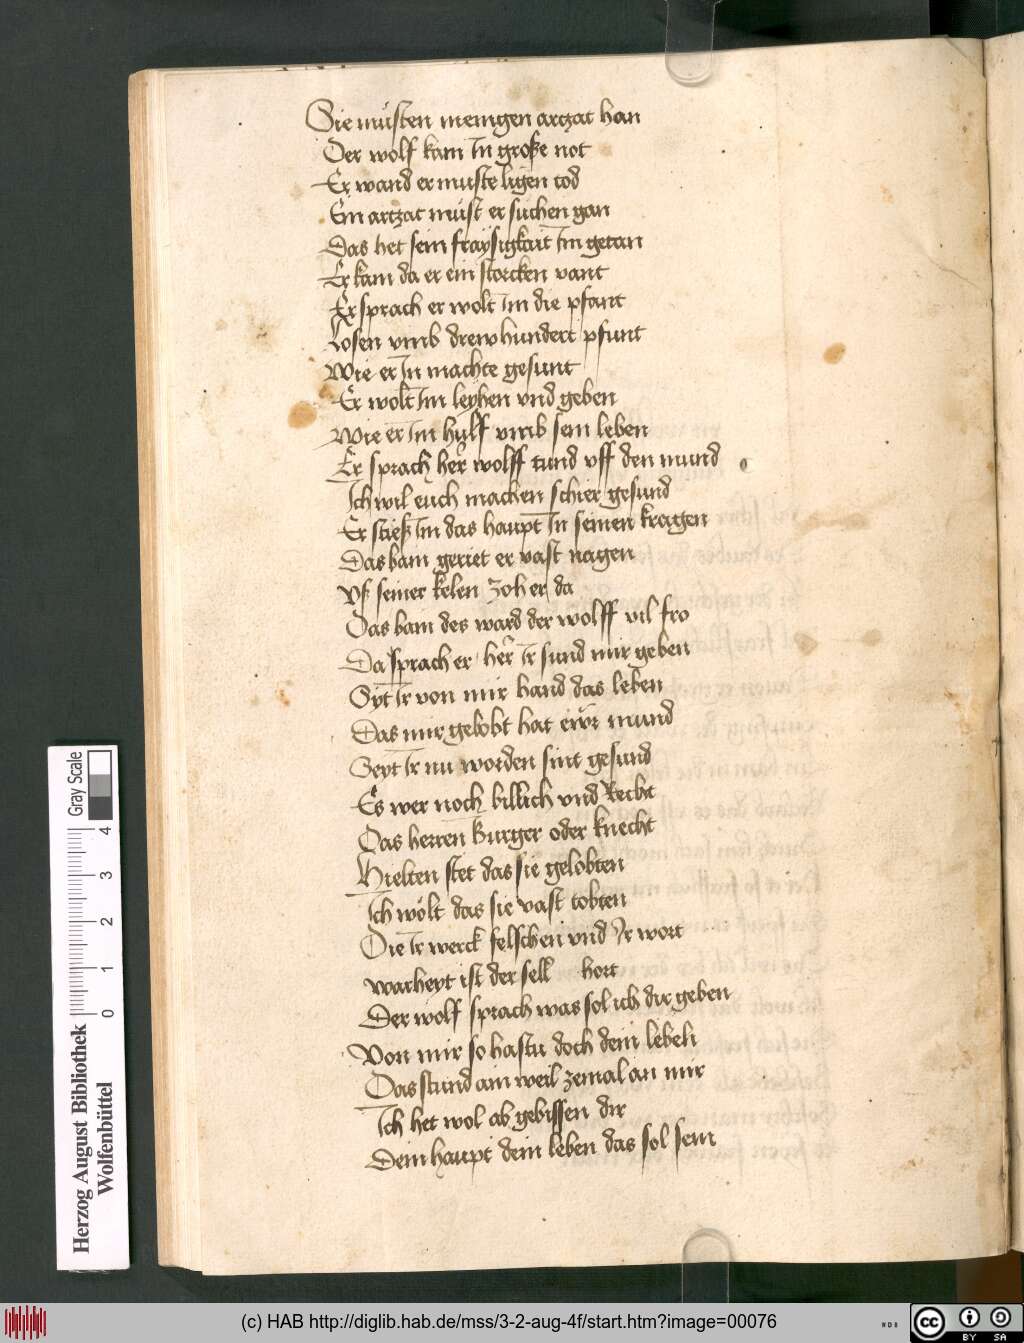 Sie müsten menigen artzat han
Der wolf kam In große not
Er wand er muste ligen tod
Ein artzat müst er suchen gan
Das het sein fraysigkait Im getan
Er kam da er ein storcken vant
Er sprach er wolt Im die pfant
Losen vmb drewhundert pfunt
Wie er In machte gesunt
Er wolt Im leyhen vnd geben
Wie er Im hulff vmb sein leben
Er sprach her wolff tund vff den mund
Ich wil euch machen schier gesund
Er stieß Im das haupt In seinen kragen
Das bain geriet er vast nagen
Vß seiner kelen zoh er da
Das bain des ward der wolff vil fro
Da sprach er her Ir sund mir geben
Syt Ir von mir hand das leben
Das mir gelobt hat ewr mund
Seyt Ir nu worden sint gesund
Es wer noch billich vnd Recht
Das herren burger oder knecht
Hielten stet das sie gelobten
Ich wölt das sie vast tobten
Die Ir werck felschen vnd Ir wort
warheyt ist der sell hort
Der wolf sprach was sol ich dir geben
Von mir so hastu doch dein leben
Das stund ain weil zemal an mir
Ich het wol ab gebissen dir
Dein haupt dein leben das sol sein
Herzog August Bibliothek
Wolfenbüttel
Gray Scale
0 1 2 3 4
(c) HAB http://diglib.hab.de/mss/3-2-aug-4f/start.htm?image=00076
cc BY SA